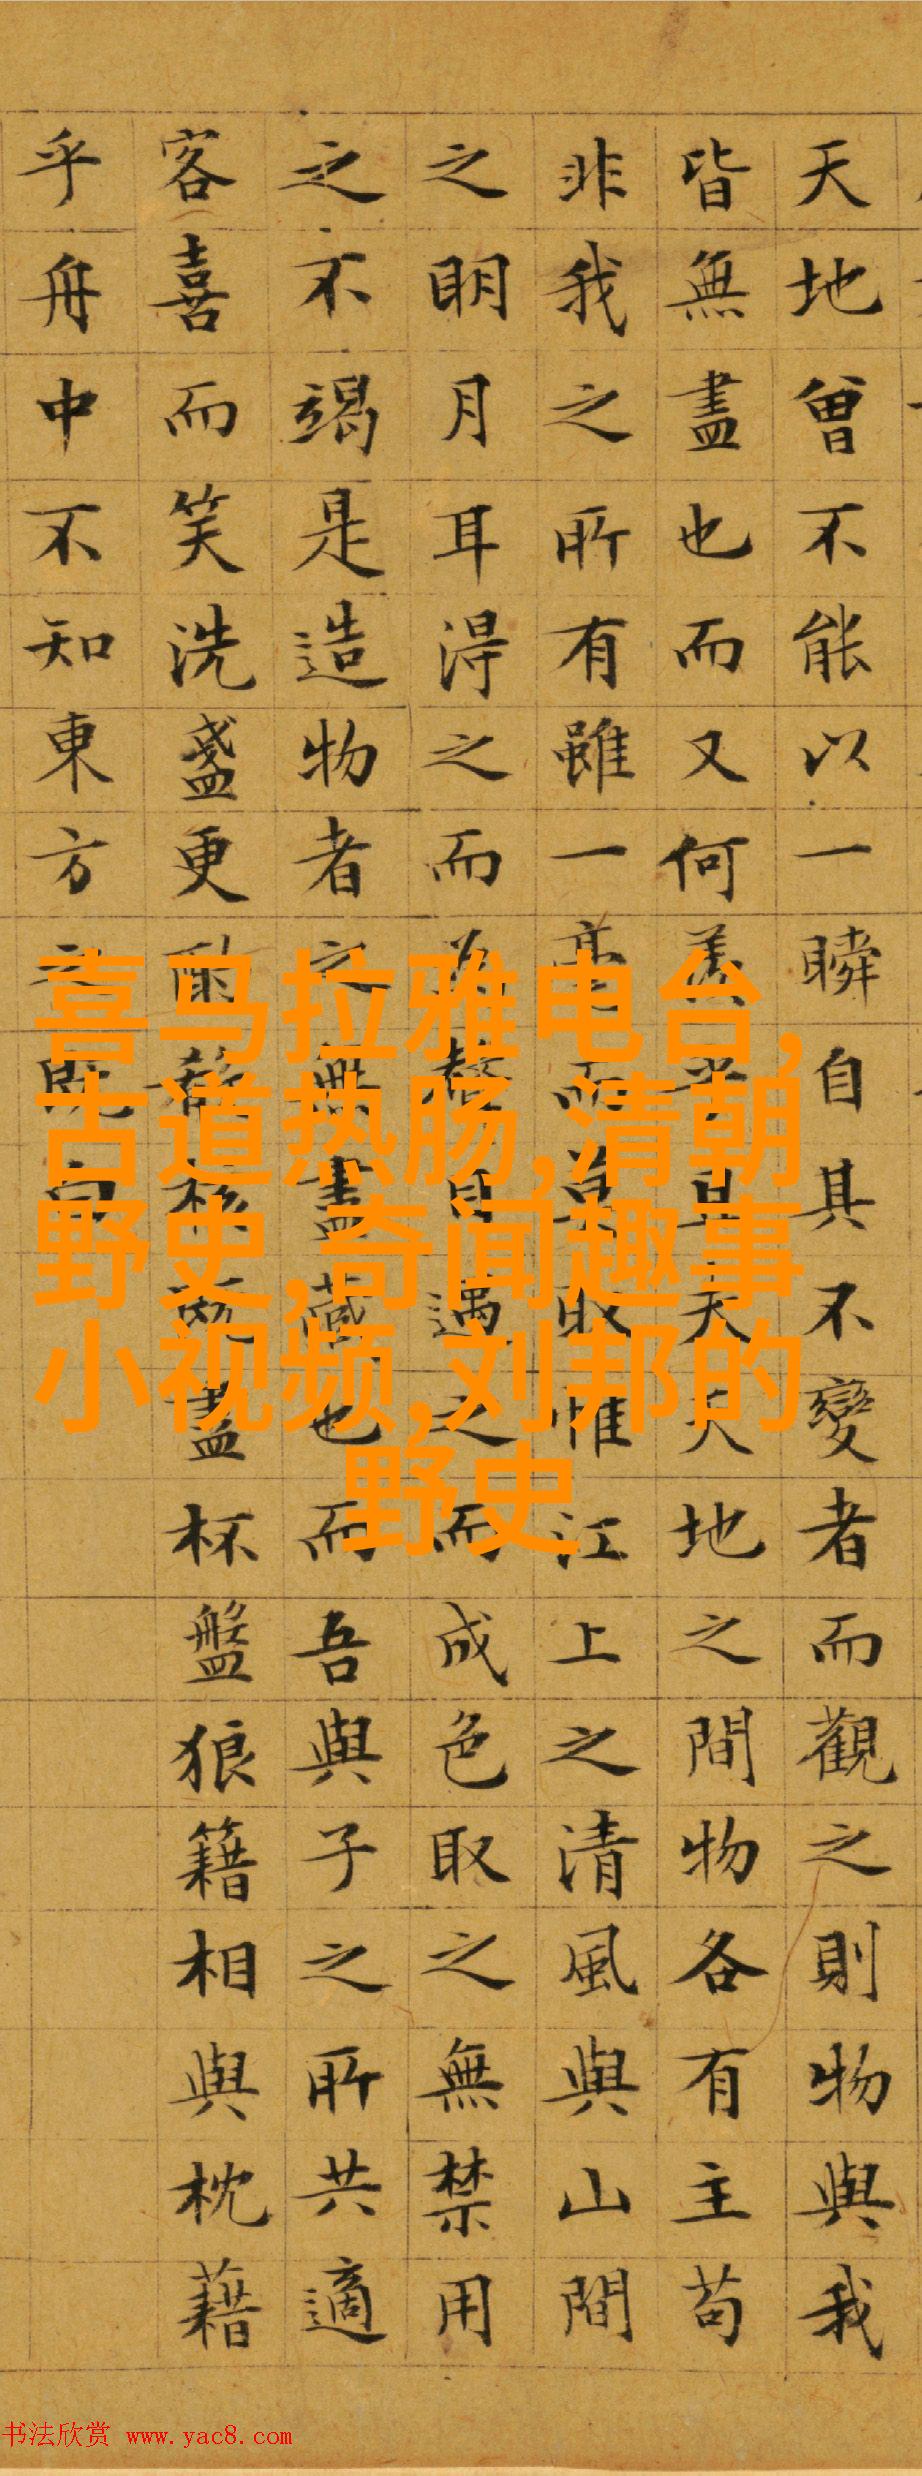 天地曾不能以一瞬自其不變者而觀之則物與我
皆無盡也而又何羨乎且夫天地之間物各有主苟
非我之所有雖一毫而莫取惟江上之清風與山間
之明月耳得之而為聲目遇之而成色取之無禁用
之不竭是造物者之無盡藏也而吾與子之所共適
客喜而笑洗盞更酌肴核既盡杯盤狼籍相與枕藉
乎舟中不知東方之既白
喜马拉雅电台,
古道热肠,清朝
野史,奇闻趣事
小视频,刘邦的
野史
书法欣赏 www.yac8.com